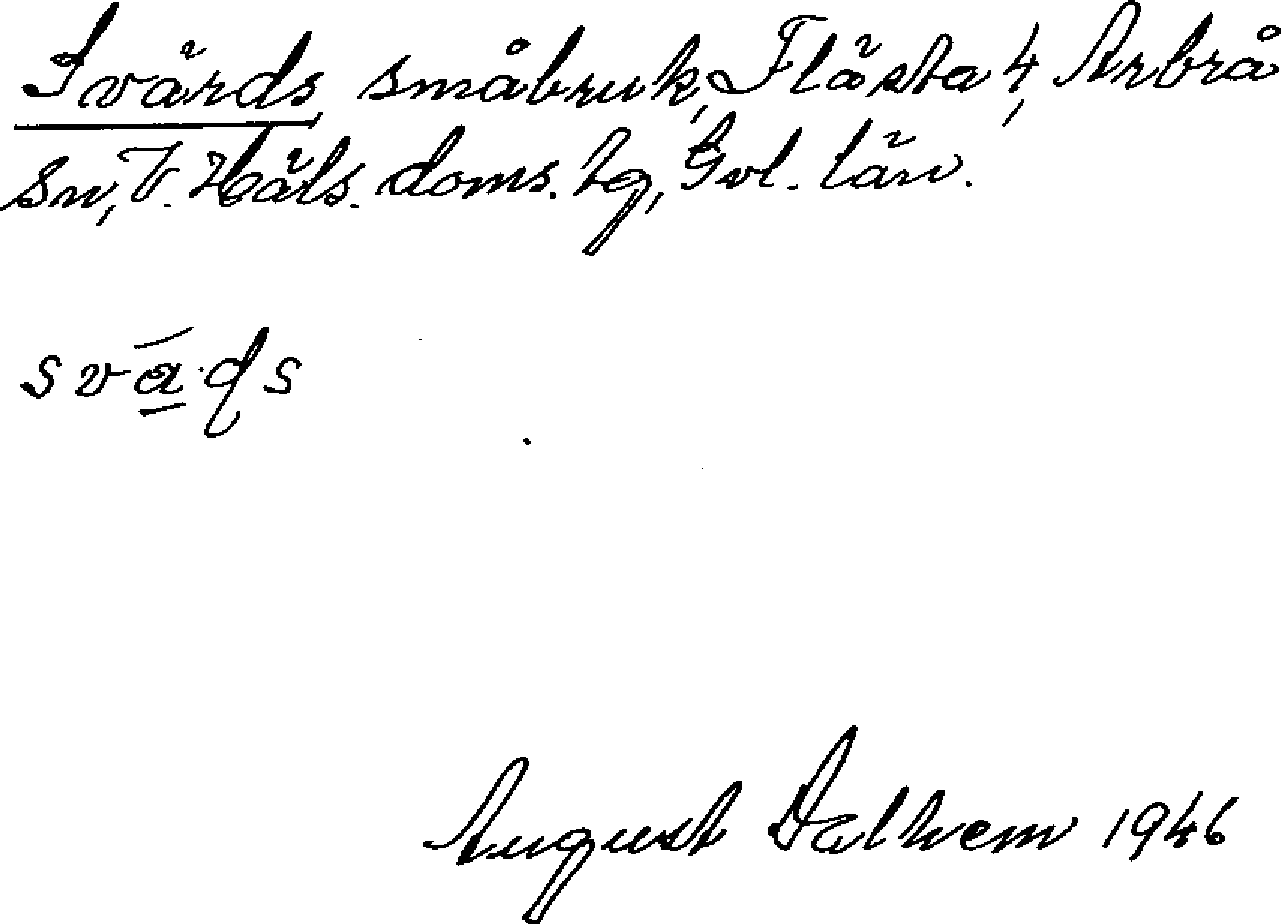 Svärds småbruk, Flästa 4, Arbrå
sn, V. Häls. doms. tg, Gvl. län.
svá̱·ḍs
August Dalhem 1946